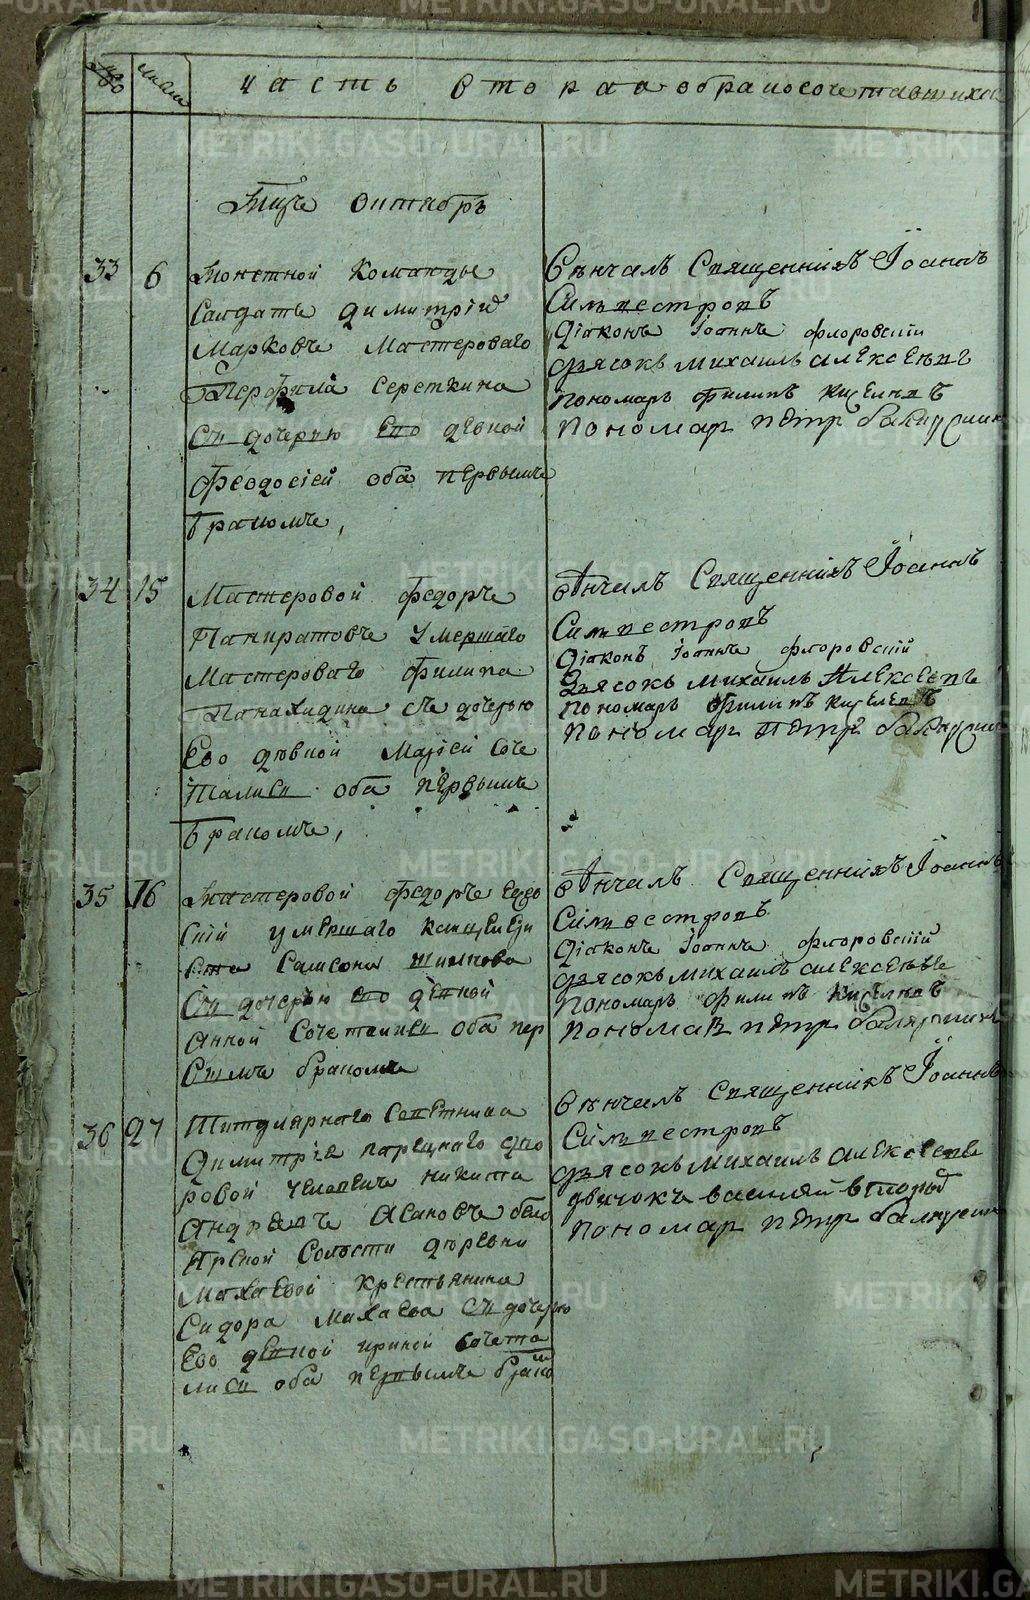 часть вторая о бракосочетавшихся
Мц̃ъ октябрь
33 6 Монетной команды
Салдатъ Димитрій
Марковъ Мастероваго
Перфила Сереткина
Съ дочерью его девкой
Феодосіей оба первымъ
бракомъ,
Вѣнчалъ Священникъ Іоаннъ
Сильвестровъ
Діаконъ Іоаннъ Флоровскій
дьячокъ Михаилъ Алексѣевъ
пономарь Филипъ Киселевъ
пономарь Петръ
34 15 Мастеровой Федоръ
Панкратовъ умершаго
Мастероваго Филипа
Панахидина съ дочерью
Его дѣвкой Маріей Соче
тались оба первымъ
бракомъ,
вѣнчалъ Священникъ Іоаннъ
Сильвестровъ
Діаконъ Іоаннъ Флоровскій
Дьячокъ Михаилъ Алексеевъ
пономарь Филипъ Киселевъ
пономарь Петръ
35 16 Мастеровой Федоръ
умершаго
Самсона
Съ дочерью его девкой
Анной Сочетались оба пер
вымъ бракомъ
вѣнчалъ Священникъ Іоаннъ
Сильвестровъ
Діаконъ Іоаннъ Флоровскій
дьячокъ Михаилъ Алексѣевъ
пономарь Филипъ Киселевъ
пономарь Петръ
36 27 Титулярнаго Советника
Димитрія дво
ровой человекъ Никита
Андреевъ Асановъ бело
ярской Волости деревни
Махаевой крестьянина
Сидора Махаева Съ дочерью
Его девкой Ириной Сочета
лись оба первымъ брако
мъ
Вѣнчалъ Священникъ Іоаннъ
Сильвестровъ
дьячокъ Михаилъ Алексеевъ
дьячокъ Василей
пономарь Петръ
METRIKI.GASO-URAL.RU